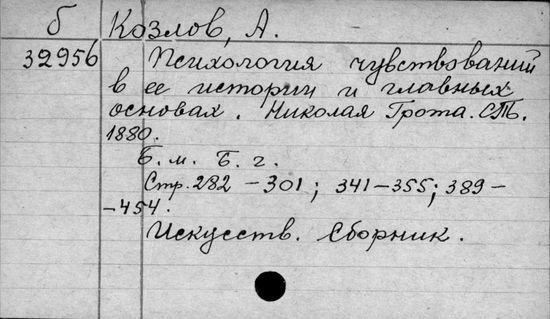 б Козлов, А.
32956 Психология чувствований
в ее истории и главных
основах. Николая Грота. СПБ.
1880.
Б. м. Б. г.
Стр. 282 - 301; 341-355; 389-
-454.
Искусств. сборник.